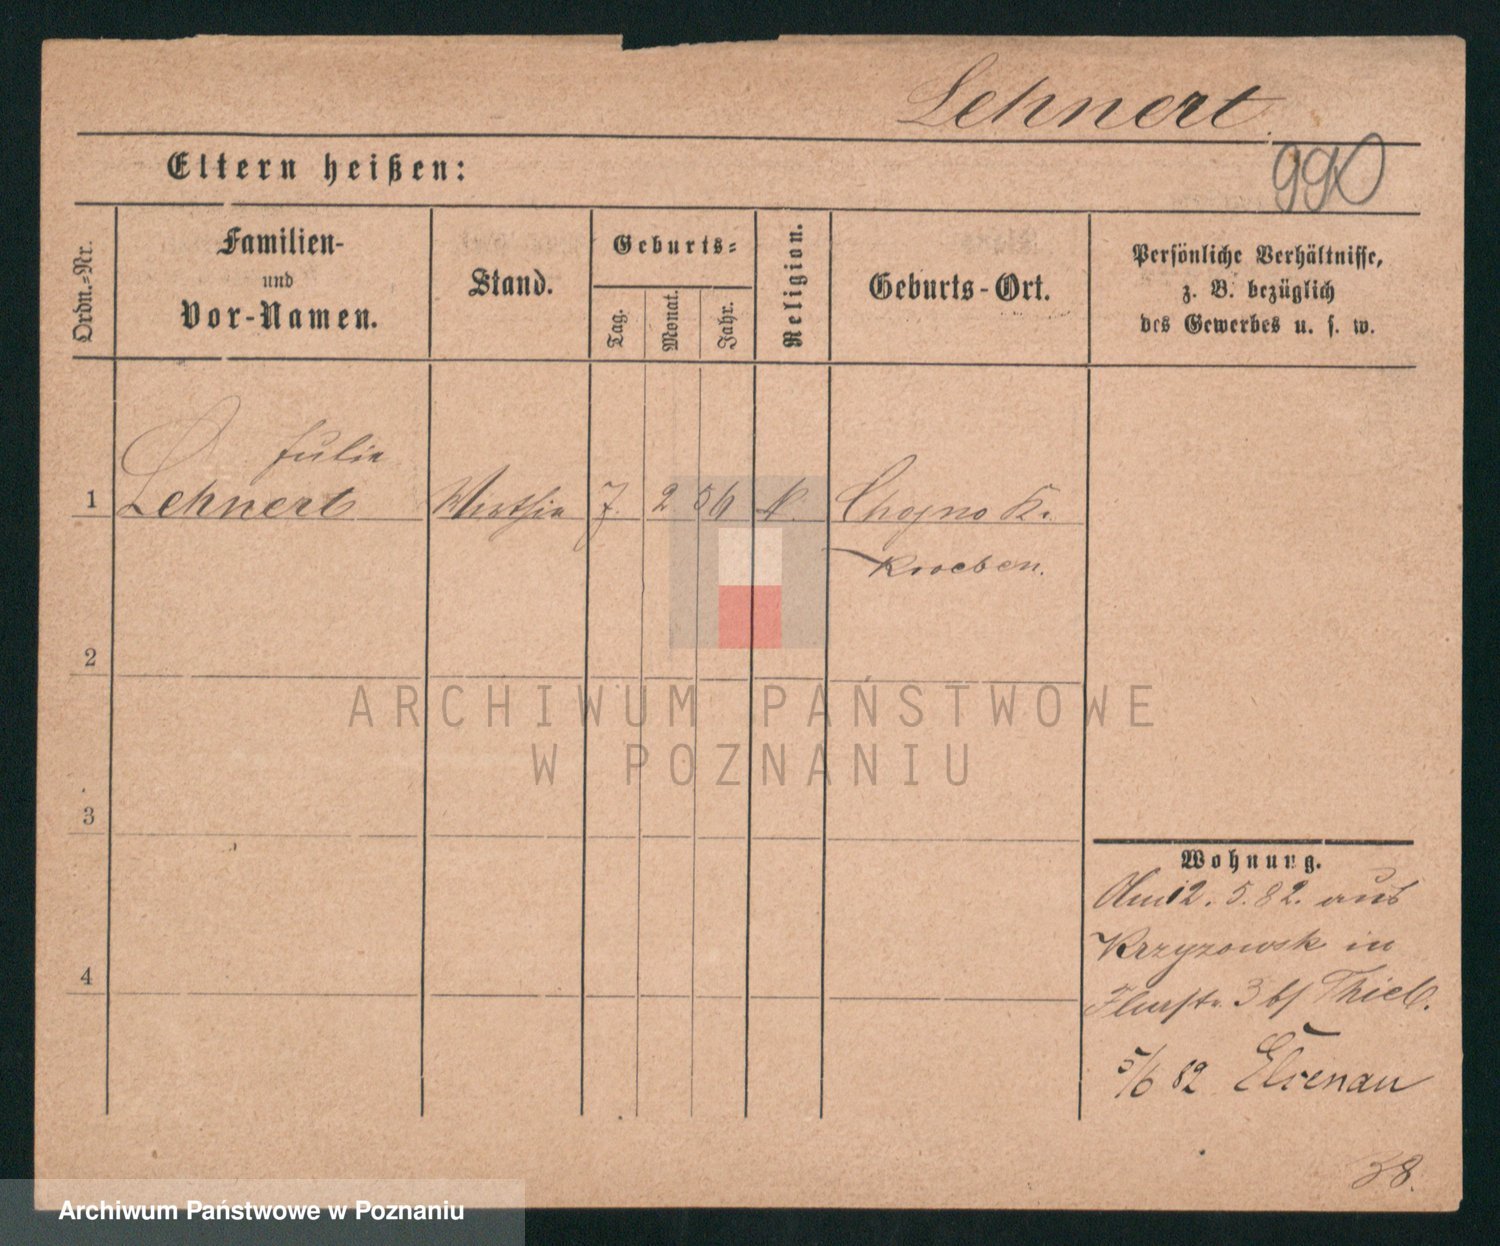 Lehnert
990
Eltern heißen:
Ordn.-Nr.
Familien-
und
Vor-Namen.
Stand.
Geburts-
Tag.
Monat.
Jahr.
Religion.
Geburts-Ort.
Persönliche Verhältnisse,
z. B. bezüglich
des Gewerbes u. s. w.
Julie
1 Lehnert Wirthin 7. 2 56 K. Chojno K.
Kroeben.
2
3
4
Wohnung.
Am 12. 5. 82. aus
Krzyzowsk in
3 b/ Thiel.
5/6 82 Elsenau
38.
ARCHIWUM PAŃSTWOWE
W POZNANIU
Archiwum Państwowe w Poznaniu